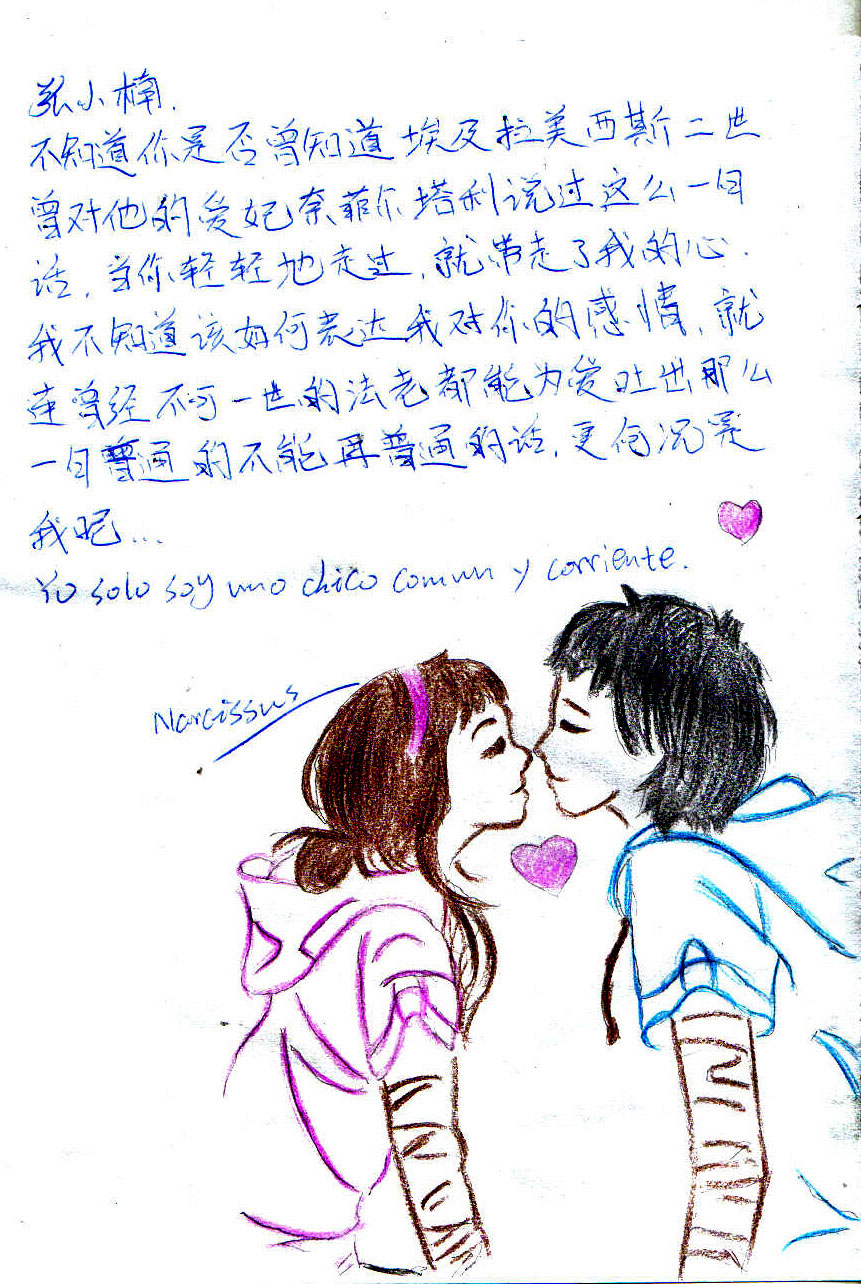 张小楠.
不知道你是否曾知道埃及拉美西斯二世
曾对他的爱妃奈菲尔塔利说过这么一句
话,当你轻轻地走过,就带走了我的心.
我不知道该如何表达我对你的感情,就
连曾经不可一世的法老都能为爱吐出那么
一句普通的不能再普通的话,更何况是
我呢...
Yo solo soy uno chico comun y corriente.
Narcissus